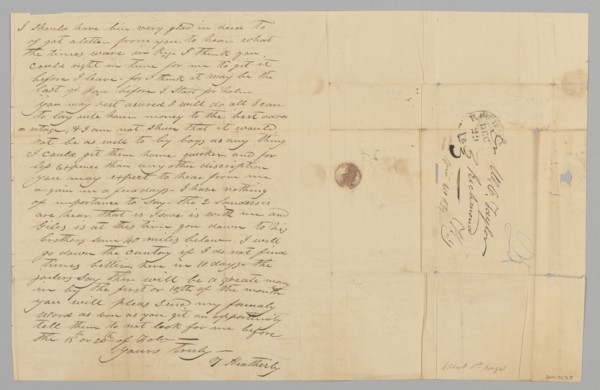 I should have bin very glad in deed to
of got a letter from you to hear what
the times ware in Rg. I think you
could right in time for me to get it
before I leave. for I think it may be the
last of Jan before I Start for holm
you may rest assured I will do all I can
to lay out our money to the best adva
ntage, & I am not Shure that it would
not be as well to by boys as any thing
I could get them home quicker and for
less expence than any other discription
you may expect to hear from me
again in a few days. I have nothing
of importance to Say. the 2 Sandersons
are hear. that is Isaac is with me and
Giles is at this time gon down to his
brothers sum 40 miles below. I will
go down the cuntry if I do not find
times better here in 10 days. the
Say their will be a greate many
in by the first or 10th of the month
you will pleas Send my family
word as soon as you get an oppertunity
tell them to not look for me before
the 15th or 20th of Feb
Yours truly
Heatherly
DEC
29
Mr C. Taylor
Richmond
Va